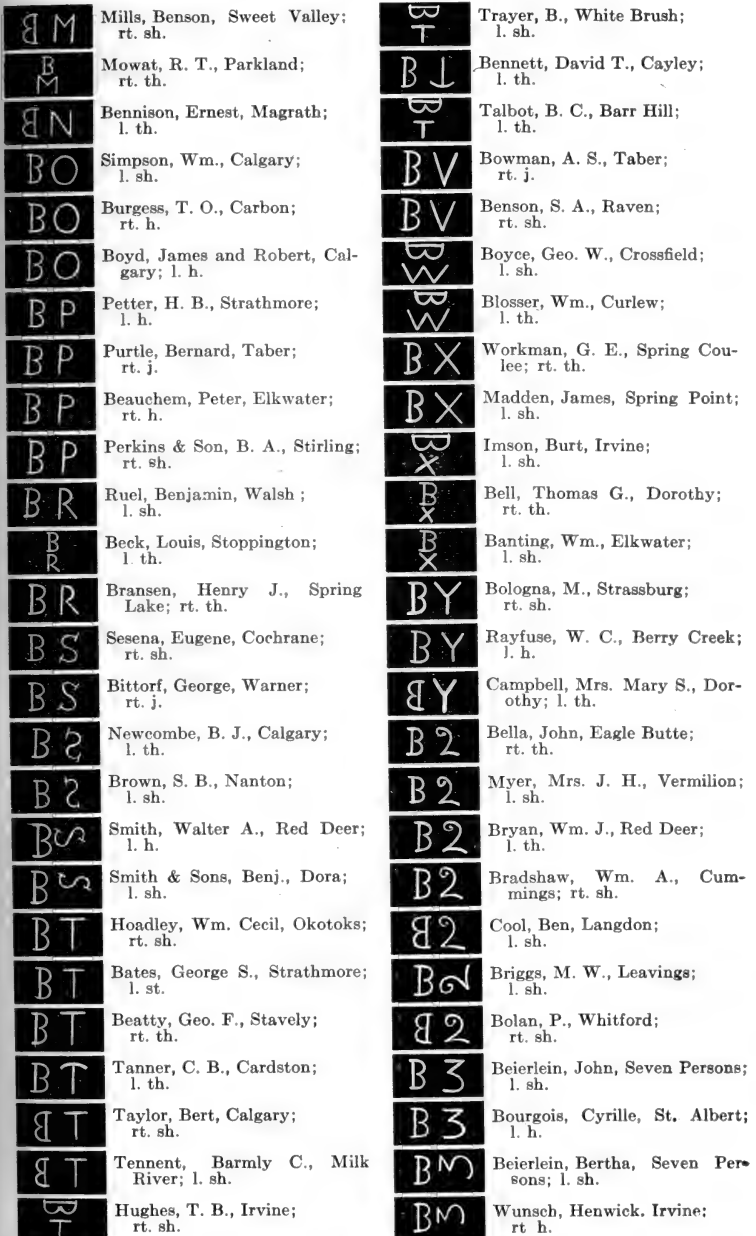 B M Mills, Benson, Sweet Valley;
rt. sh.
B
M Mowat, R. T., Parkland;
rt. th.
B N Bennison, Ernest, Magrath;
l. th.
B O Simpson, Wm., Calgary;
l. sh.
B O Burgess, T. O., Carbon;
rt. h.
B O Boyd, James and Robert, Cal-
gary; l. h.
B P Petter, H. B., Strathmore;
l. h.
B P Purtle, Bernard, Taber;
rt. j.
B P Beauchem, Peter, Elkwater;
rt. h.
B P Perkins & Son, B. A., Stirling;
rt. sh.
B R Ruel, Benjamin, Walsh ;
l. sh.
B
R Beck, Louis, Stoppington;
l. th.
B R Bransen, Henry J., Spring
Lake; rt. th.
B S Sesena, Eugene, Cochrane;
rt. sh.
B S Bittorf, George, Warner;
rt. j.
B S Newcombe, B. J., Calgary;
l. th.
B S Brown, S. B., Nanton;
l. sh.
B S Smith, Walter A., Red Deer;
l. h.
B S Smith & Sons, Benj., Dora;
l. sh.
B T Hoadley, Wm. Cecil, Okotoks;
rt. sh.
B T Bates, George S., Strathmore;
l. st.
B T Beatty, Geo. F., Stavely;
rt. th.
B T Tanner, C. B., Cardston;
l. th.
B T Taylor, Bert, Calgary;
rt. sh.
B T Tennent, Barmly C., Milk
River; l. sh.
B
T Hughes, T. B., Irvine;
rt. sh.
B
T Trayer, B., White Brush;
l. sh.
B T Bennett, David T., Cayley;
l. th.
B
T Talbot, B. C., Barr Hill;
l. th.
B V Bowman, A. S., Taber;
rt. j.
B V Benson, S. A., Raven;
rt. sh.
B
W Boyce, Geo. W., Crossfield;
l. sh.
B
W Blosser, Wm., Curlew;
l. th.
B X Workman, G. E., Spring Cou-
lee; rt. th.
B X Madden, James, Spring Point;
l. sh.
B
X Imson, Burt, Irvine;
l. sh.
B
X Bell, Thomas G., Dorothy;
rt. th.
B
X Banting, Wm., Elkwater;
l. sh.
B Y Bologna, M., Strassburg;
rt. sh.
B Y Rayfuse, W. C., Berry Creek;
l. h.
B Y Campbell, Mrs. Mary S., Dor-
othy; l. th.
B 2 Bella, John, Eagle Butte;
rt. th.
B 2 Myer, Mrs. J. H., Vermilion;
l. sh.
B 2 Bryan, Wm. J., Red Deer;
l. th.
B 2 Bradshaw, Wm. A., Cum-
mings; rt. sh.
B 2 Cool, Ben, Langdon;
l. sh.
B 2 Briggs, M. W., Leavings;
l. sh.
B 2 Bolan, P., Whitford;
rt. sh.
B 3 Beierlein, John, Seven Persons;
l. sh.
B 3 Bourgois, Cyrille, St. Albert;
l. h.
B 3 Beierlein, Bertha, Seven Per-
sons; l. sh.
B 3 Wunsch, Henwick, Irvine;
rt h.